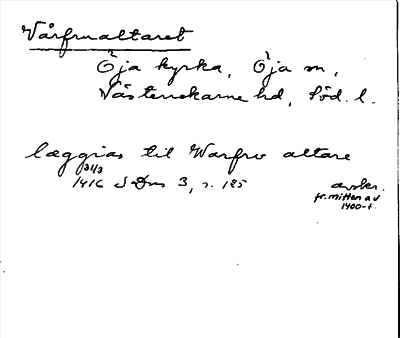 Vårfrualtaret
Öja kyrka, Öja sn,
Västerrekarne hd, Söd. l.
læggias til Warfrv altare
31/3
1416 SDns 3, s. 125
avskr.
fr. mitten av
1400-t.